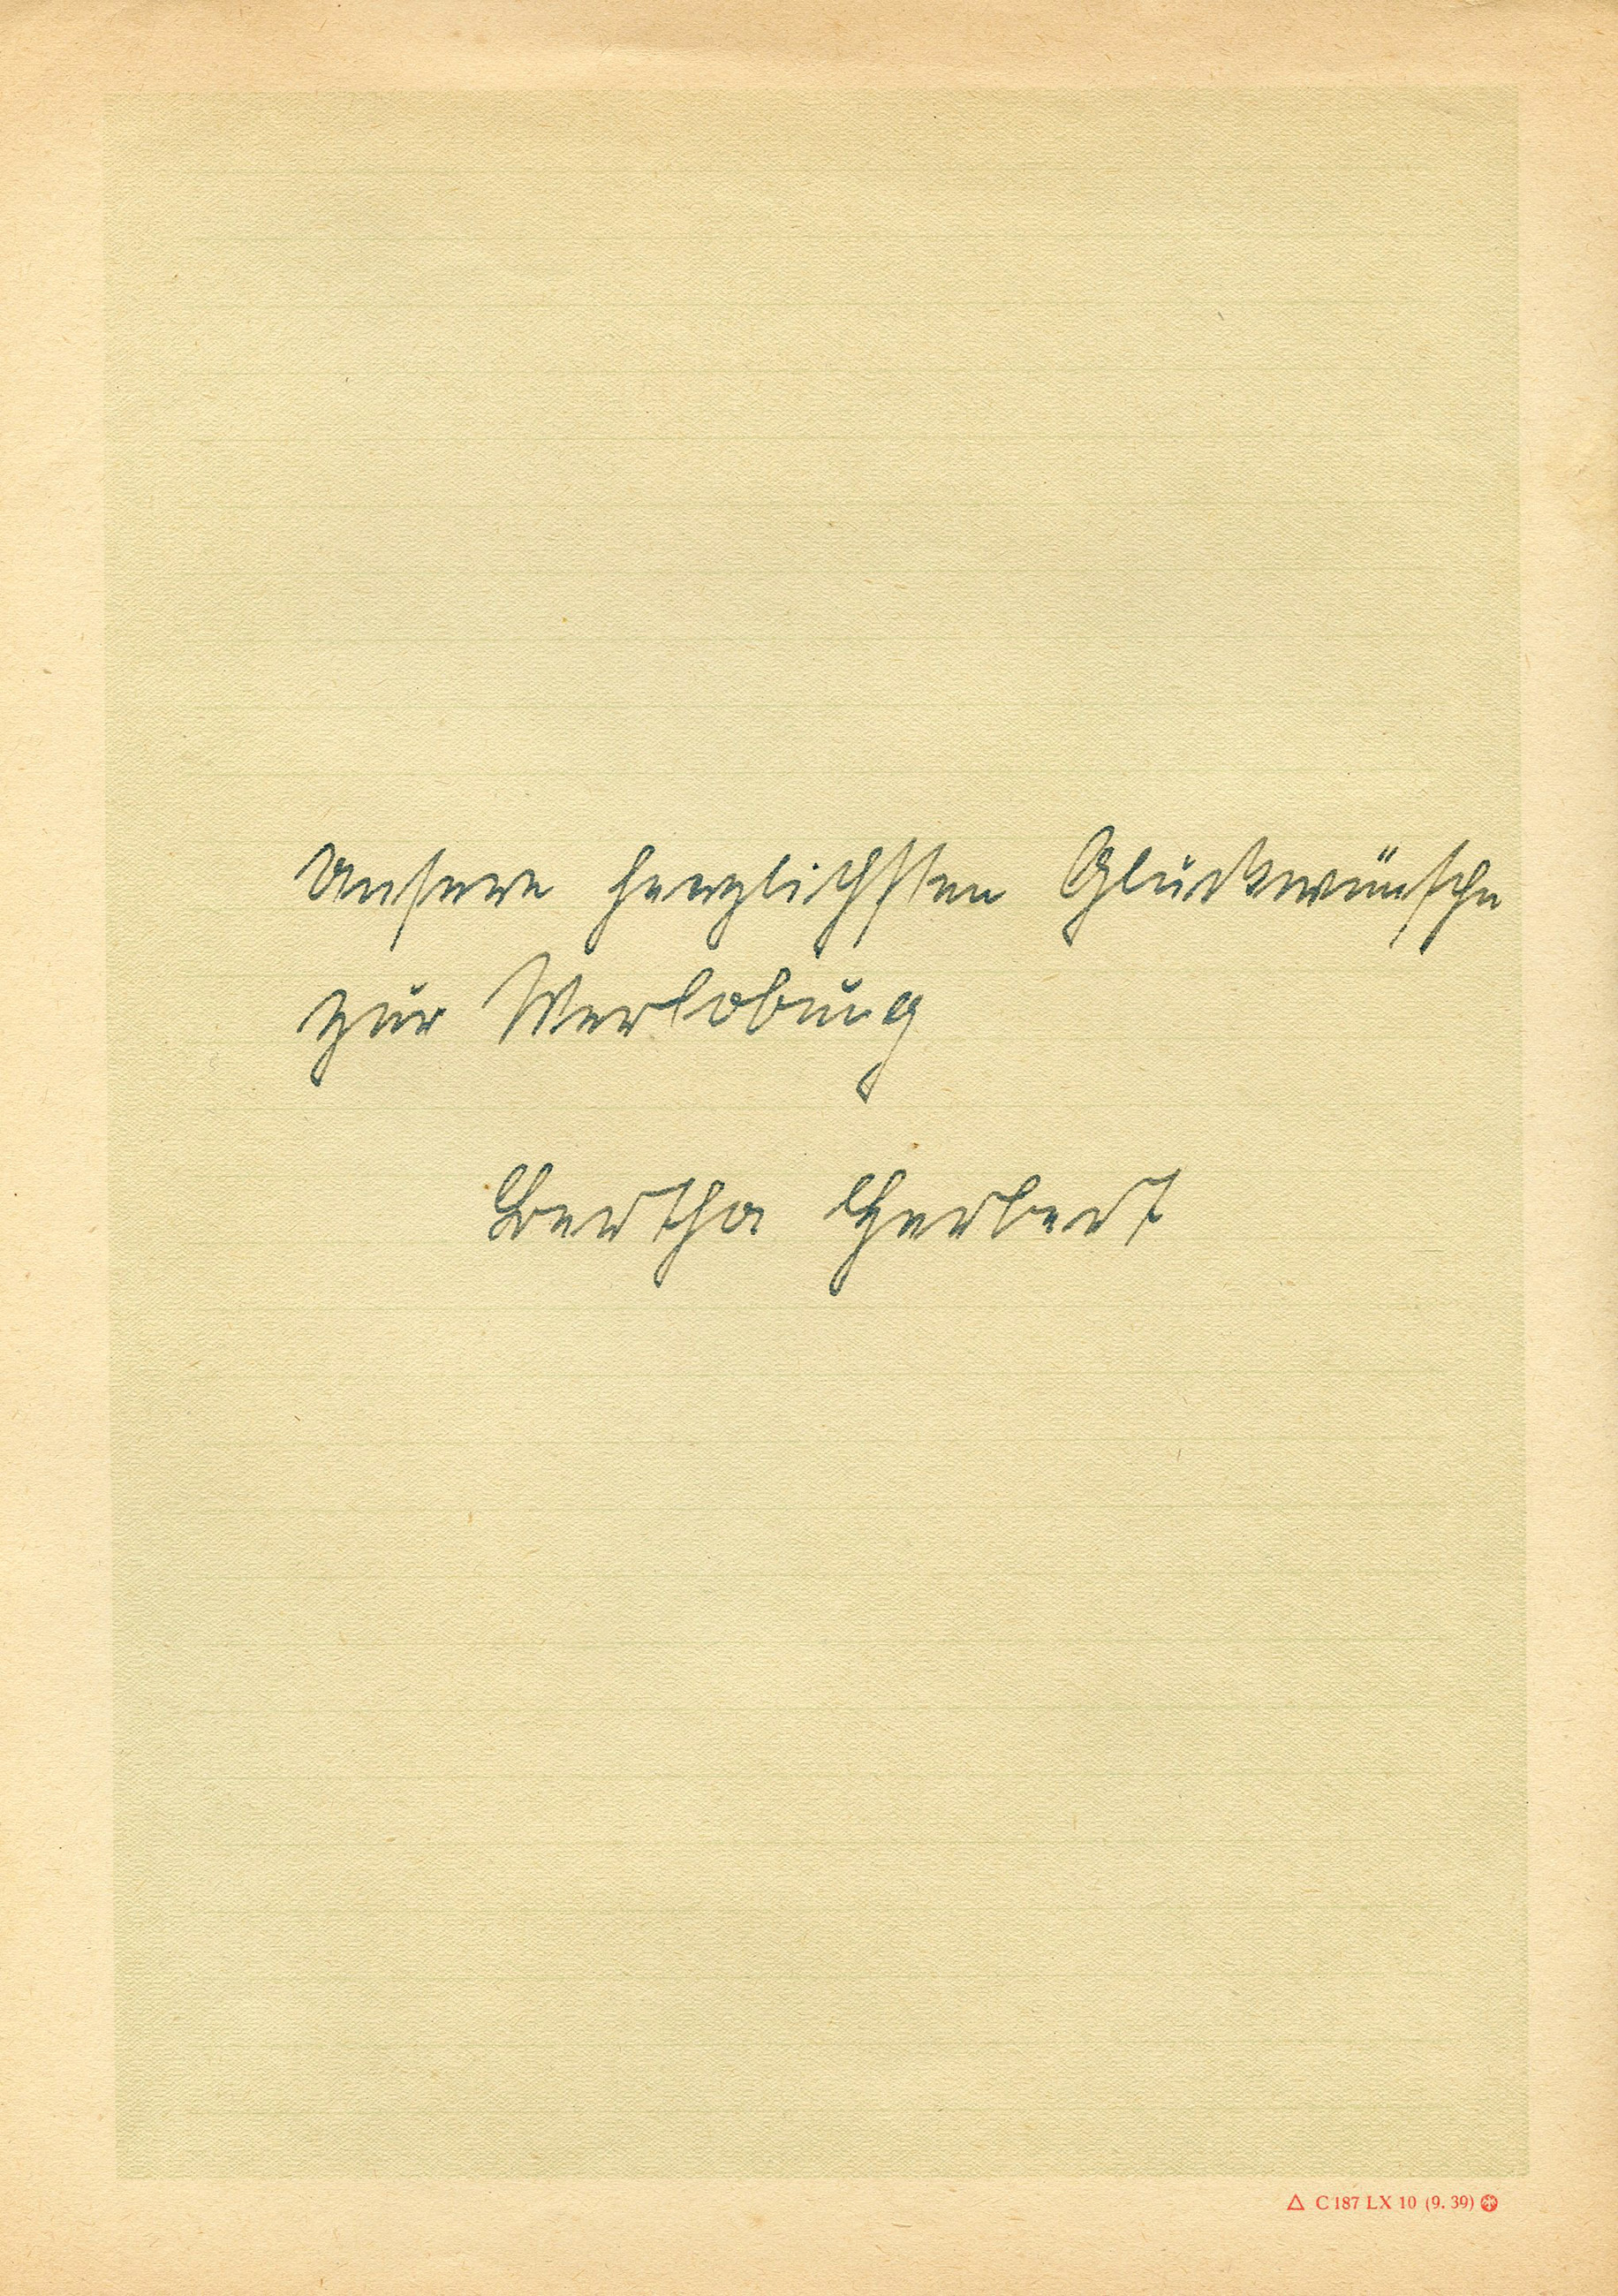 Unsere herzlichsten Glückwünsche
zur Verlobung
Bertha Herbert
C 187 LX 10 (9. 39)